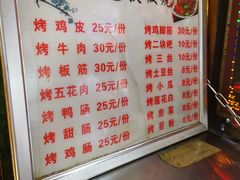 烤鸡皮 25元/份
烤牛肉 30元/份
烤板筋 30元/份
烤五花肉 25元/份
烤鸭肠 25元/份
烤甜肠 25元/份
烤鸡肠 25元/份
烤鸡脚筋 30元/份
烤二块粑 10元/份
烤三丝 10元/份
烤土豆丝 8元/份
烤小瓜 8元/份
烤莲花白 8元/份
烤韭菜 8元/份
烤苕粉 8元/份